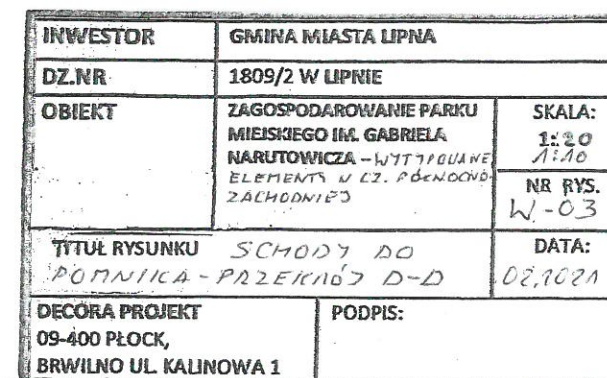 INWESTOR GMINA MIASTA LIPNA
DZ.NR 1809/2 W LIPNIE
OBIEKT ZAGOSPODAROWANIE PARKU
MIEJSKIEGO IM. GABRIELA
NARUTOWICZA – WYTYPOWANE
ELEMENTY W CZ. PÓŁNOCNO-
ZACHODNIEJ
SKALA:
1:20
1:10
NR RYS.
W-03
TYTUŁ RYSUNKU SCHODY DO
POMNIKA - PRZEKRÓJ D-D
DATA:
02.2021
DECORA PROJEKT
09-400 PŁOCK,
BRWILNO UL. KALINOWA 1
PODPIS: